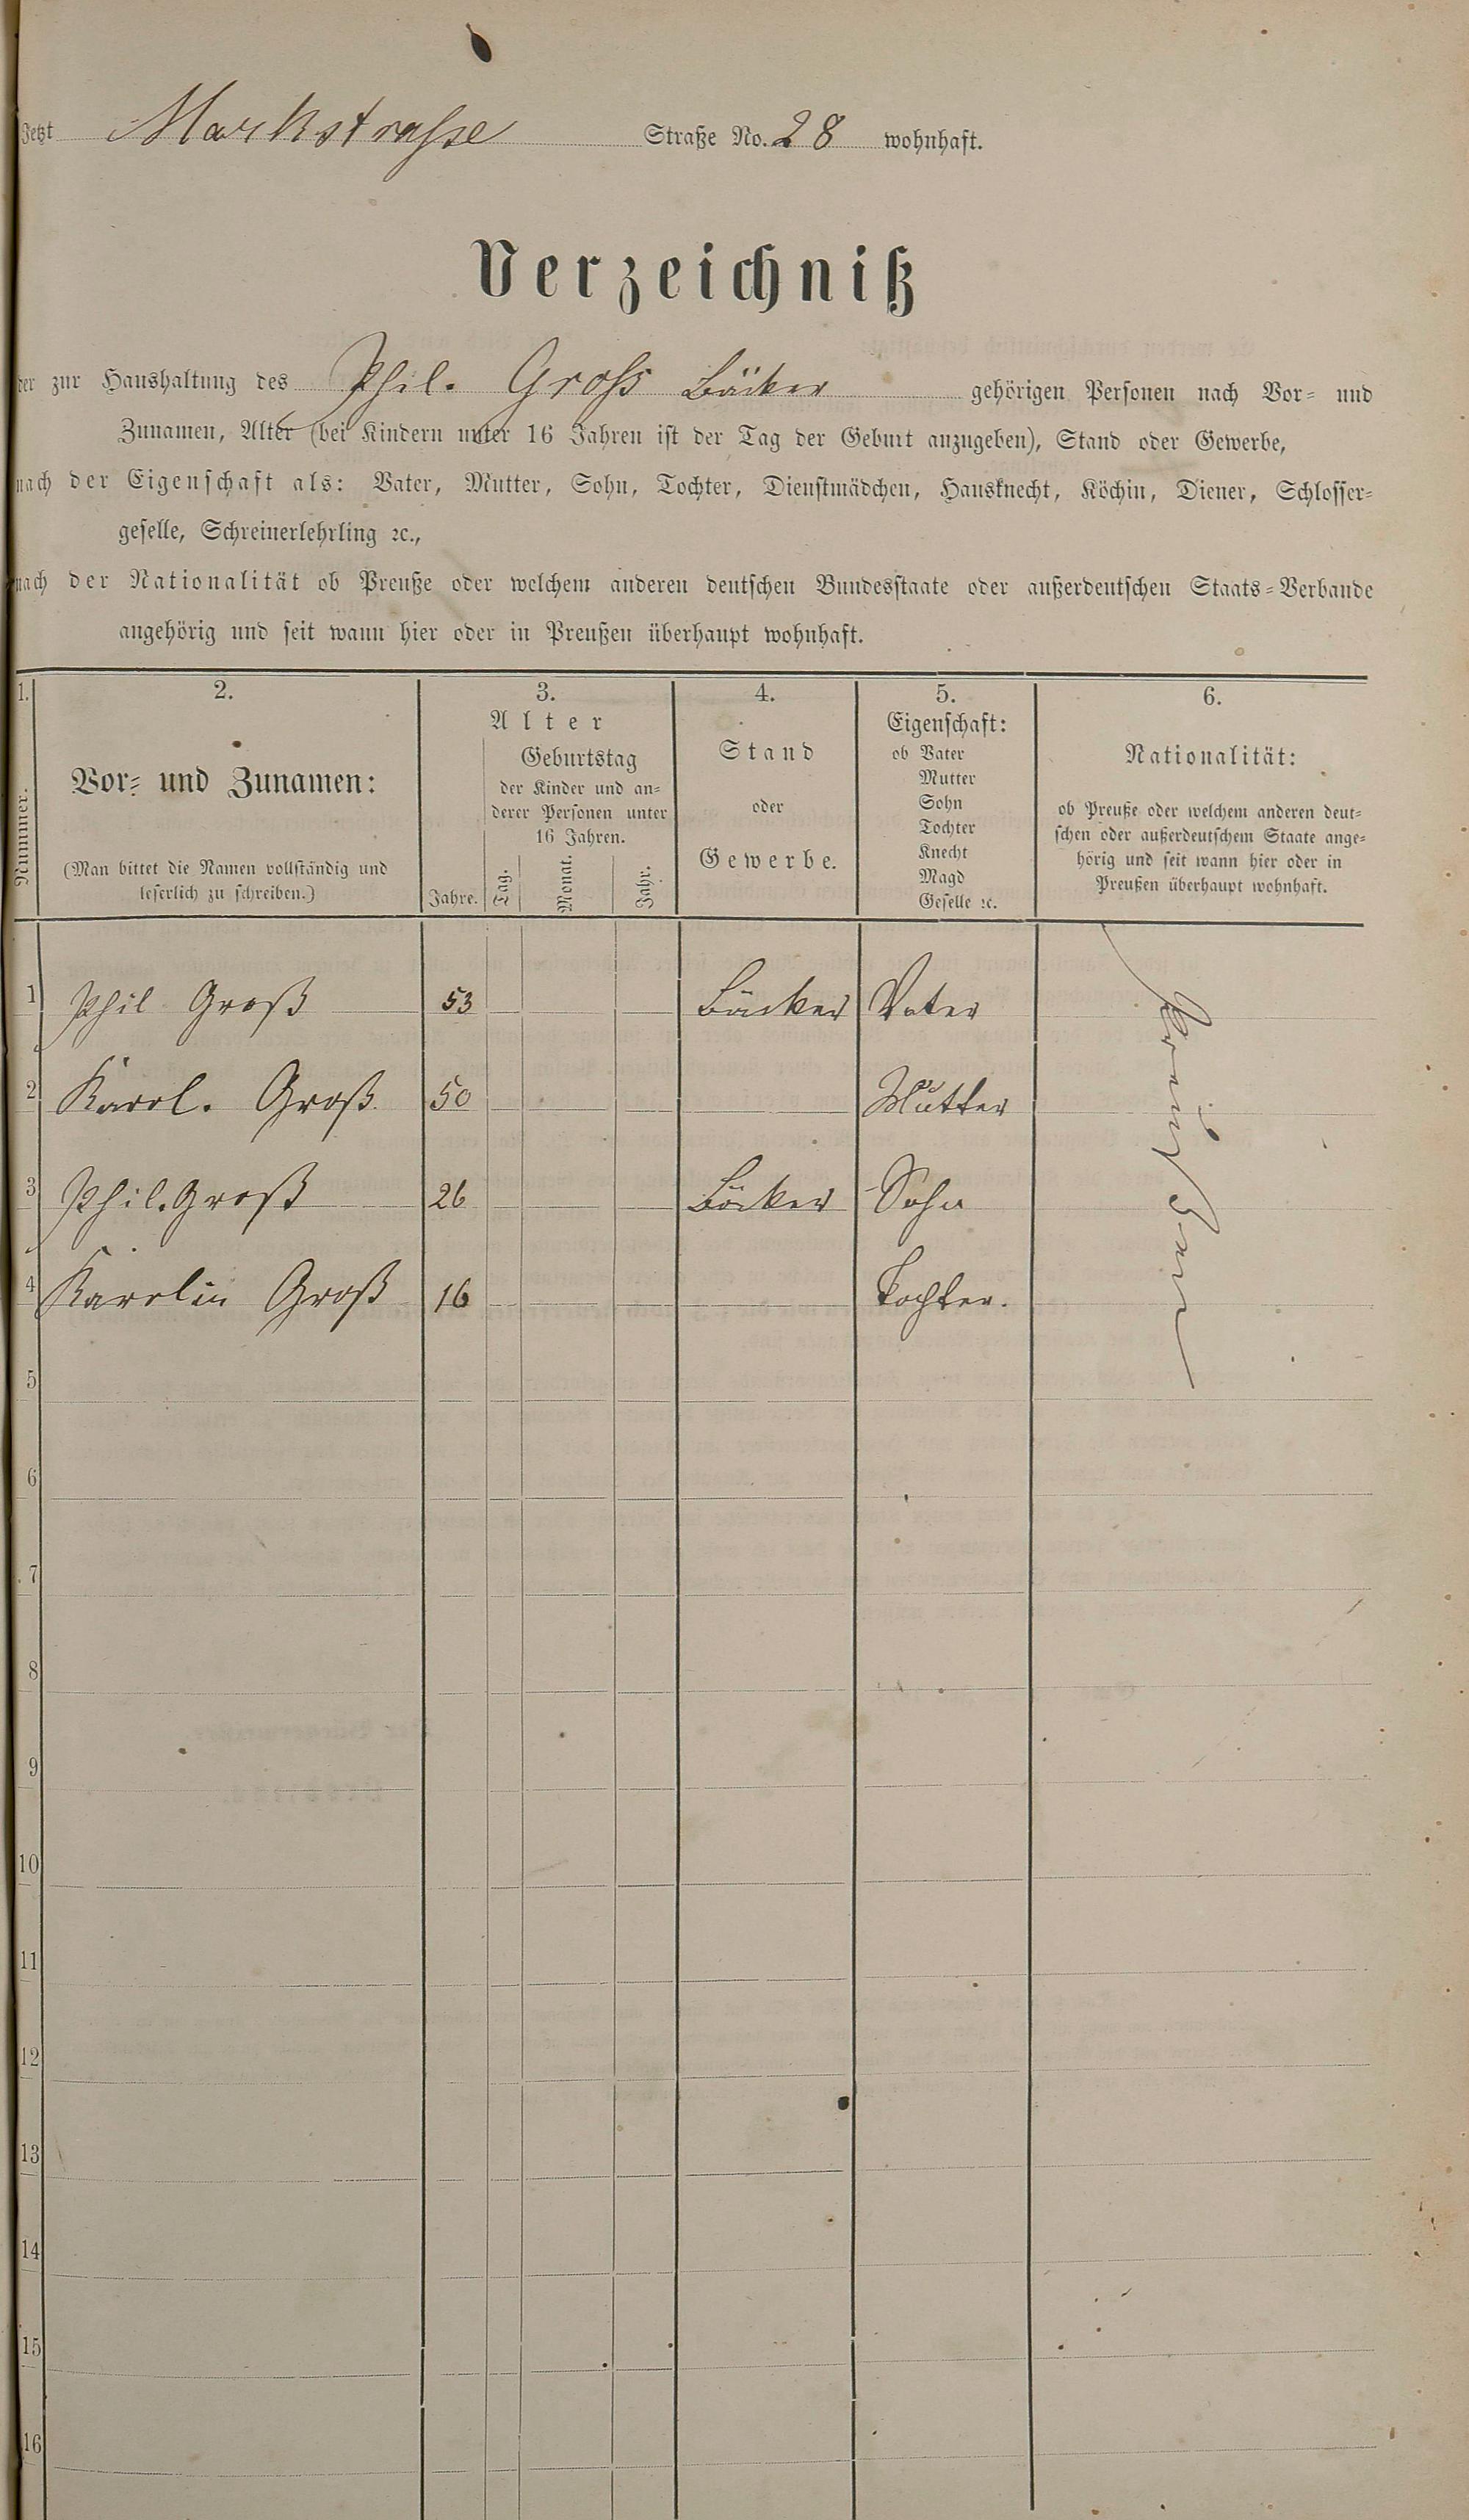 Jetzt Markstraße Straße No. 28 wohnhaft.
Verzeichniß
der zur Haushaltung des Phil. Groß Bäcker gehörigen Personen nach Vor- und
Zunamen, Alter (bei Kindern unter 16 Jahren ist der Tag der Geburt anzugeben), Stand oder Gewerbe,
nach der Eigenschaft als: Vater, Mutter, Sohn, Tochter, Dienstmädchen, Hausknecht, Köchin, Diener, Schlosser-
geselle, Schreinerlehrling ꝛc.,
nach der Nationalität ob Preuße oder welchem anderen deutschen Bundesstaate oder außerdeutschen Staats-Verbande
angehörig und seit wann hier oder in Preußen überhaupt wohnhaft.
1. 2. 3. 4. 5. 6.
Nummer.
Vor- und Zunamen:
(Man bittet die Namen vollständig und
leserlich zu schreiben.)
Alter
Jahre.
Geburtstag
der Kinder und an-
derer Personen unter
16 Jahren.
Tag. Monat. Jahr.
Stand
oder
Gewerbe.
Eigenschaft:
ob Vater
Mutter
Sohn
Tochter
Knecht
Magd
Geselle ꝛc.
Nationalität:
ob Preuße oder welchem anderen deut-
schen oder außerdeutschem Staate ange-
hörig und seit wann hier oder in
Preußen überhaupt wohnhaft.
1 Phil Groß 53 Bäcker Vater
2 Karol. Groß 50 Mutter
3 Phil. Groß 26 Bäcker Sohn
4 Karolin Groß 16 Tochter.
5
6
7
8
9
10
11
12
13
14
15
16